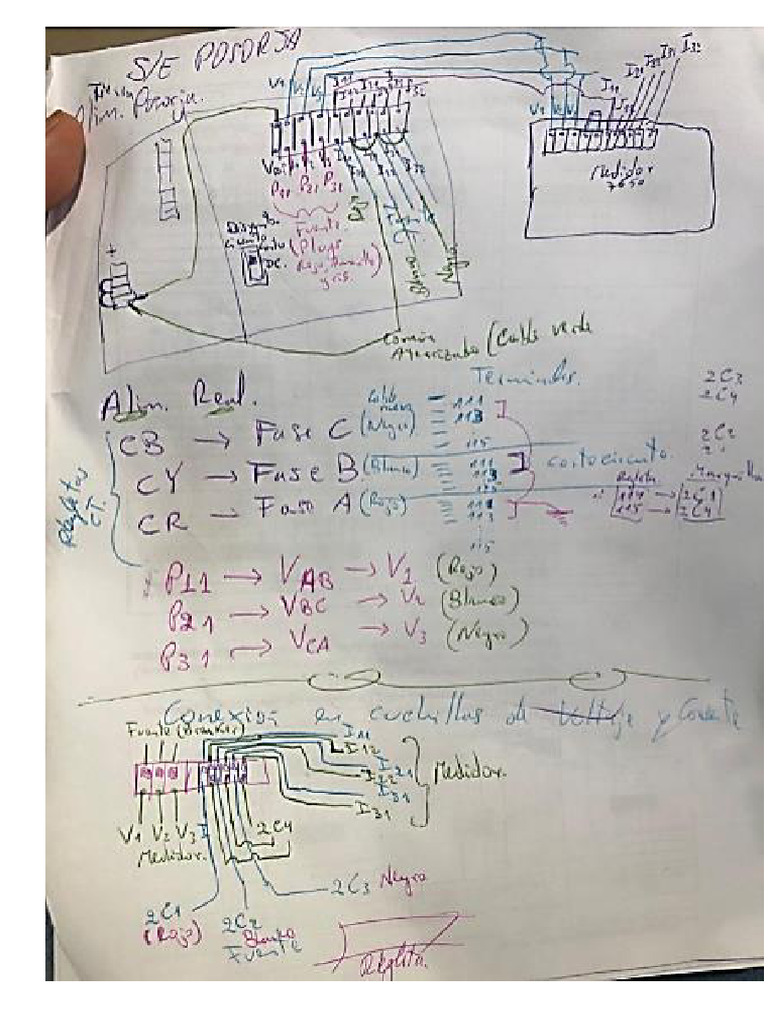 S/E POSORJA
Alim. Posorja.
V1 V2 V3 I11
V1 V2 V3 I11
I21 I22 I31 I32
Medidor
7650
P11 P21 P31
Rojo
Fuente
CT.
Fuente
(Plugs
Rojo, Amarillo)
y gris.
DC.
Blanco
Negro
Común
Aterrizado (Cable verde
Alim. Real.
Terminales.
2C3
2C4
2C2
CB → Fase C (Negro)
111
113
115
CY → Fase B (Blanco)
111
113
115
cortocircuito.
CR → Fase A (Rojo)
111
113
115
Regleta
114 → 2C1
115 → 2C4
Regletas
CT.
P11 → VAB → V1 (Rojo)
P21 → VBC → V2 (Blanco)
P31 → VCA → V3 (Negro)
Conexión en cuchillas de Voltaje y Corriente
Fuente (Breaker)
I11
I12
I21
I22
I31
I31
Medidor.
V1 V2 V3 I
Medidor.
2C4
2C3 Negro
2C1
(Rojo)
2C2
Blanco
Fuente
Regleta.